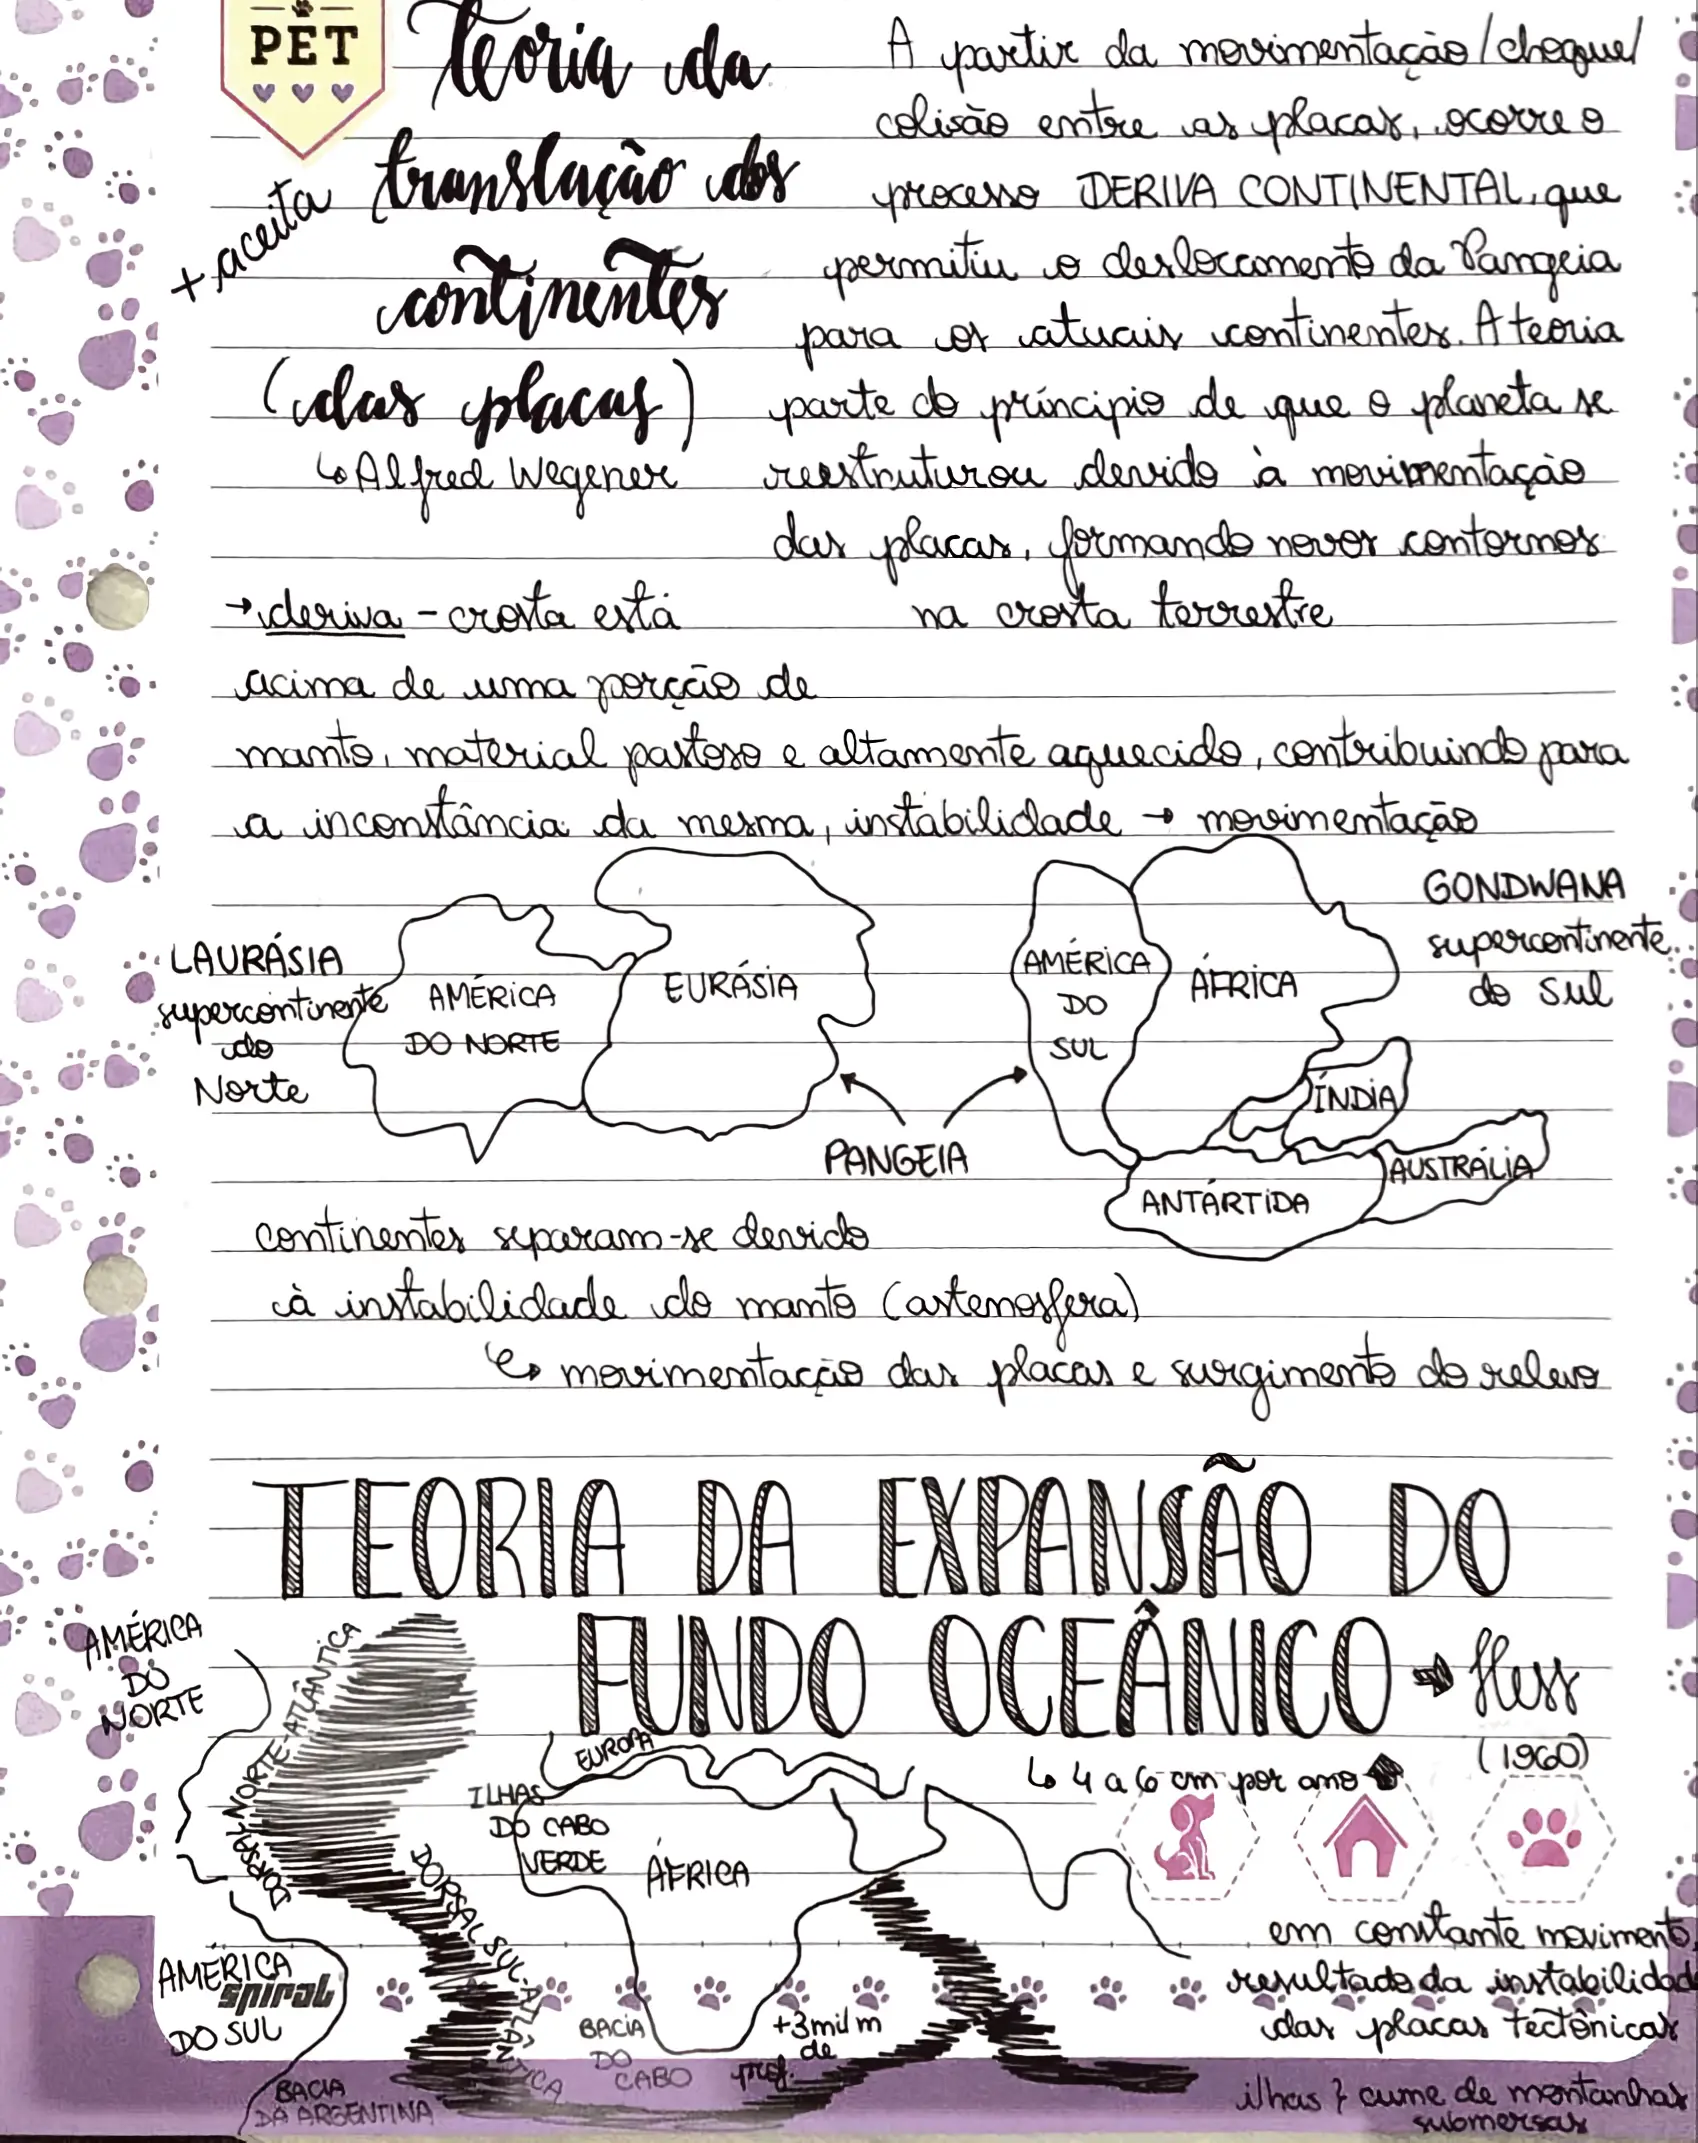 PET
Teoria da
translação dos
continentes
(das placas)
+ aceita
↳ Alfred Wegener
A partir da movimentação/choque/
colisão entre as placas, ocorre o
processo DERIVA CONTINENTAL, que
permitiu o deslocamento da Pangeia
para os atuais continentes. A teoria
parte do princípio de que o planeta se
reestruturou devido à movimentação
das placas, formando novos contornos
na crosta terrestre
→ deriva - crosta está
acima de uma porção de
manto, material pastoso e altamente aquecido, contribuindo para
a inconstância da mesma, instabilidade → movimentação
LAURÁSIA
supercontinente
do
Norte
AMÉRICA
DO NORTE
EURÁSIA
PANGEIA
AMÉRICA
DO
SUL
ÁFRICA
ÍNDIA
AUSTRÁLIA
ANTÁRTIDA
GONDWANA
supercontinente
do Sul
continentes separam-se devido
à instabilidade do manto (astenosfera)
↳ movimentação das placas e surgimento do relevo
TEORIA DA EXPANSÃO DO
FUNDO OCEÂNICO → Hess
(1960)
↳ 4 a 6 cm por ano
AMÉRICA
DO
NORTE
DORSAL NORTE-ATLÂNTICA
EUROPA
ILHAS
DO CABO
VERDE
ÁFRICA
DORSAL SUL-ATLÂNTICA
AMÉRICA
DO SUL
spiral
BACIA
DO
CABO
+3mil m
de
prof.
BACIA
DA ARGENTINA
em constante movimento,
resultado da instabilidade
das placas tectônicas
ilhas } cume de montanhas
submersas